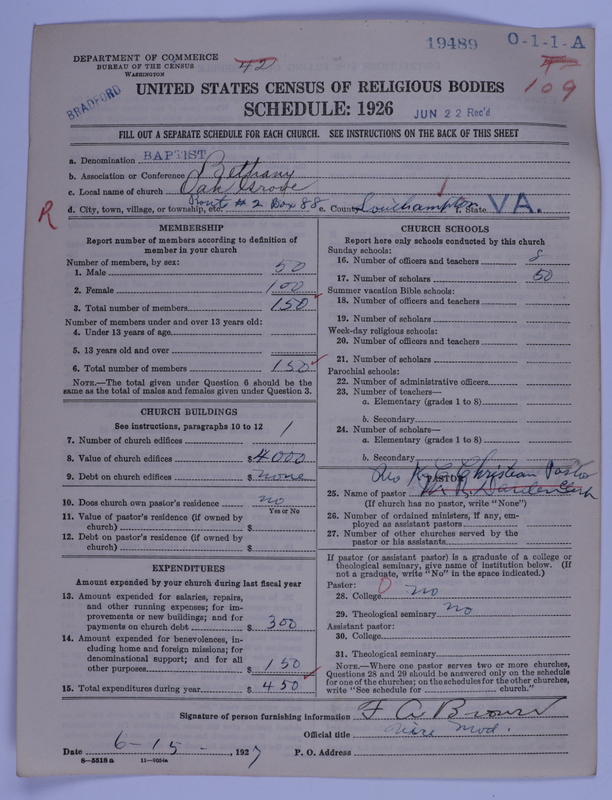 19489 O-1-1-A
DEPARTMENT OF COMMERCE
BUREAU OF THE CENSUS
WASHINGTON
42
42
109
UNITED STATES CENSUS OF RELIGIOUS BODIES
BRADFORD
SCHEDULE: 1926 JUN 22 Rec'd
FILL OUT A SEPARATE SCHEDULE FOR EACH CHURCH. SEE INSTRUCTIONS ON THE BACK OF THIS SHEET
a. Denomination BAPTIST
b. Association or Conference Bethany
c. Local name of church Oak Grove
d. City, town, village, or township, etc. Route #2 Box 88 e. County Southampton f. State VA.
R
MEMBERSHIP
Report number of members according to definition of
member in your church
Number of members, by sex:
1. Male 50
2. Female 100
3. Total number of members 150
Number of members under and over 13 years old:
4. Under 13 years of age
5. 13 years old and over
6. Total number of members 150
NOTE.—The total given under Question 6 should be the
same as the total of males and females given under Question 3.
CHURCH BUILDINGS
See instructions, paragraphs 10 to 12
7. Number of church edifices 1
8. Value of church edifices $ 4000
9. Debt on church edifices $ none
10. Does church own pastor's residence no
Yes or No
11. Value of pastor's residence (if owned by
church) $
12. Debt on pastor's residence (if owned by
church) $
EXPENDITURES
Amount expended by your church during last fiscal year
13. Amount expended for salaries, repairs,
and other running expenses; for im-
provements or new buildings; and for
payments on church debt $ 300
14. Amount expended for benevolences, in-
cluding home and foreign missions; for
denominational support; and for all
other purposes $ 150
15. Total expenditures during year $ 450
CHURCH SCHOOLS
Report here only schools conducted by this church
Sunday schools:
16. Number of officers and teachers 8
17. Number of scholars 50
Summer vacation Bible schools:
18. Number of officers and teachers
19. Number of scholars
Week-day religious schools:
20. Number of officers and teachers
21. Number of scholars
Parochial schools:
22. Number of administrative officers
23. Number of teachers—
a. Elementary (grades 1 to 8)
b. Secondary
24. Number of scholars—
a. Elementary (grades 1 to 8)
b. Secondary
Christian Pastor
PASTOR
25. Name of pastor
(If church has no pastor, write "None")
26. Number of ordained ministers, if any, em-
ployed as assistant pastors
27. Number of other churches served by the
pastor or his assistants
If pastor (or assistant pastor) is a graduate of a college or
theological seminary, give name of institution below. (If
not a graduate, write "No" in the space indicated.)
Pastor:
28. College 0 no
29. Theological seminary no
Assistant pastor:
30. College
31. Theological seminary
NOTE.—Where one pastor serves two or more churches,
Questions 28 and 29 should be answered only on the schedule
for one of the churches; on the schedules for the other churches,
write "See schedule for church."
Signature of person furnishing information F A Brown
Official title Vice Mod.
Date 6-15-, 1927 P. O. Address
8—5518a 11—9054a